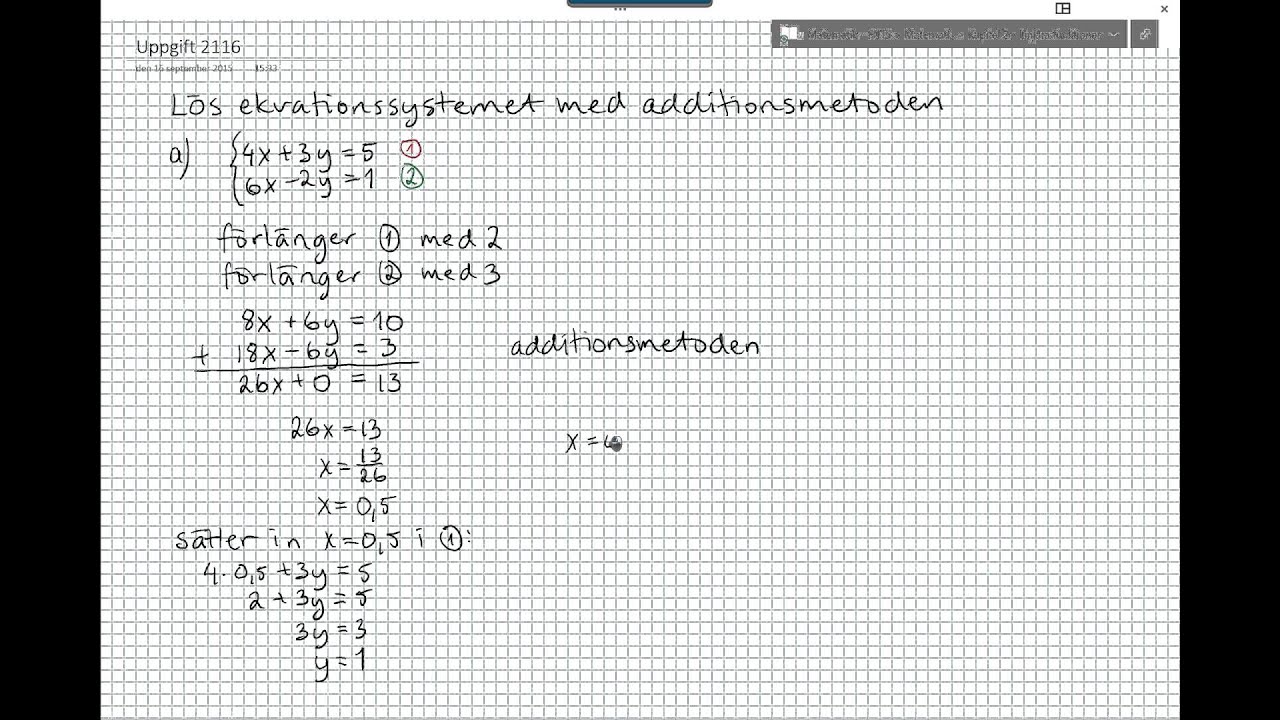 Uppgift 2116
den 16 september 2015 15:33
Lös ekvationssystemet med additionsmetoden
a) {4x+3y=5 ①
{6x-2y=1 ②
förlänger ① med 2
förlänger ② med 3
8x+6y=10
+ 18x-6y=3
additionsmetoden
26x+0=13
26x=13
x=
x=13/26
x=0,5
sätter in x=0,5 i ①:
4·0,5+3y=5
2+3y=5
3y=3
y=1